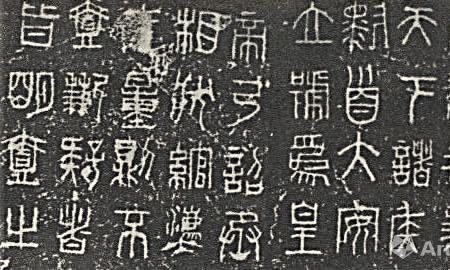 天下諸侯
黔首大安
立號爲皇
帝乃詔丞
相狀綰灋
度量劓不
壹歉疑者
皆明壹之